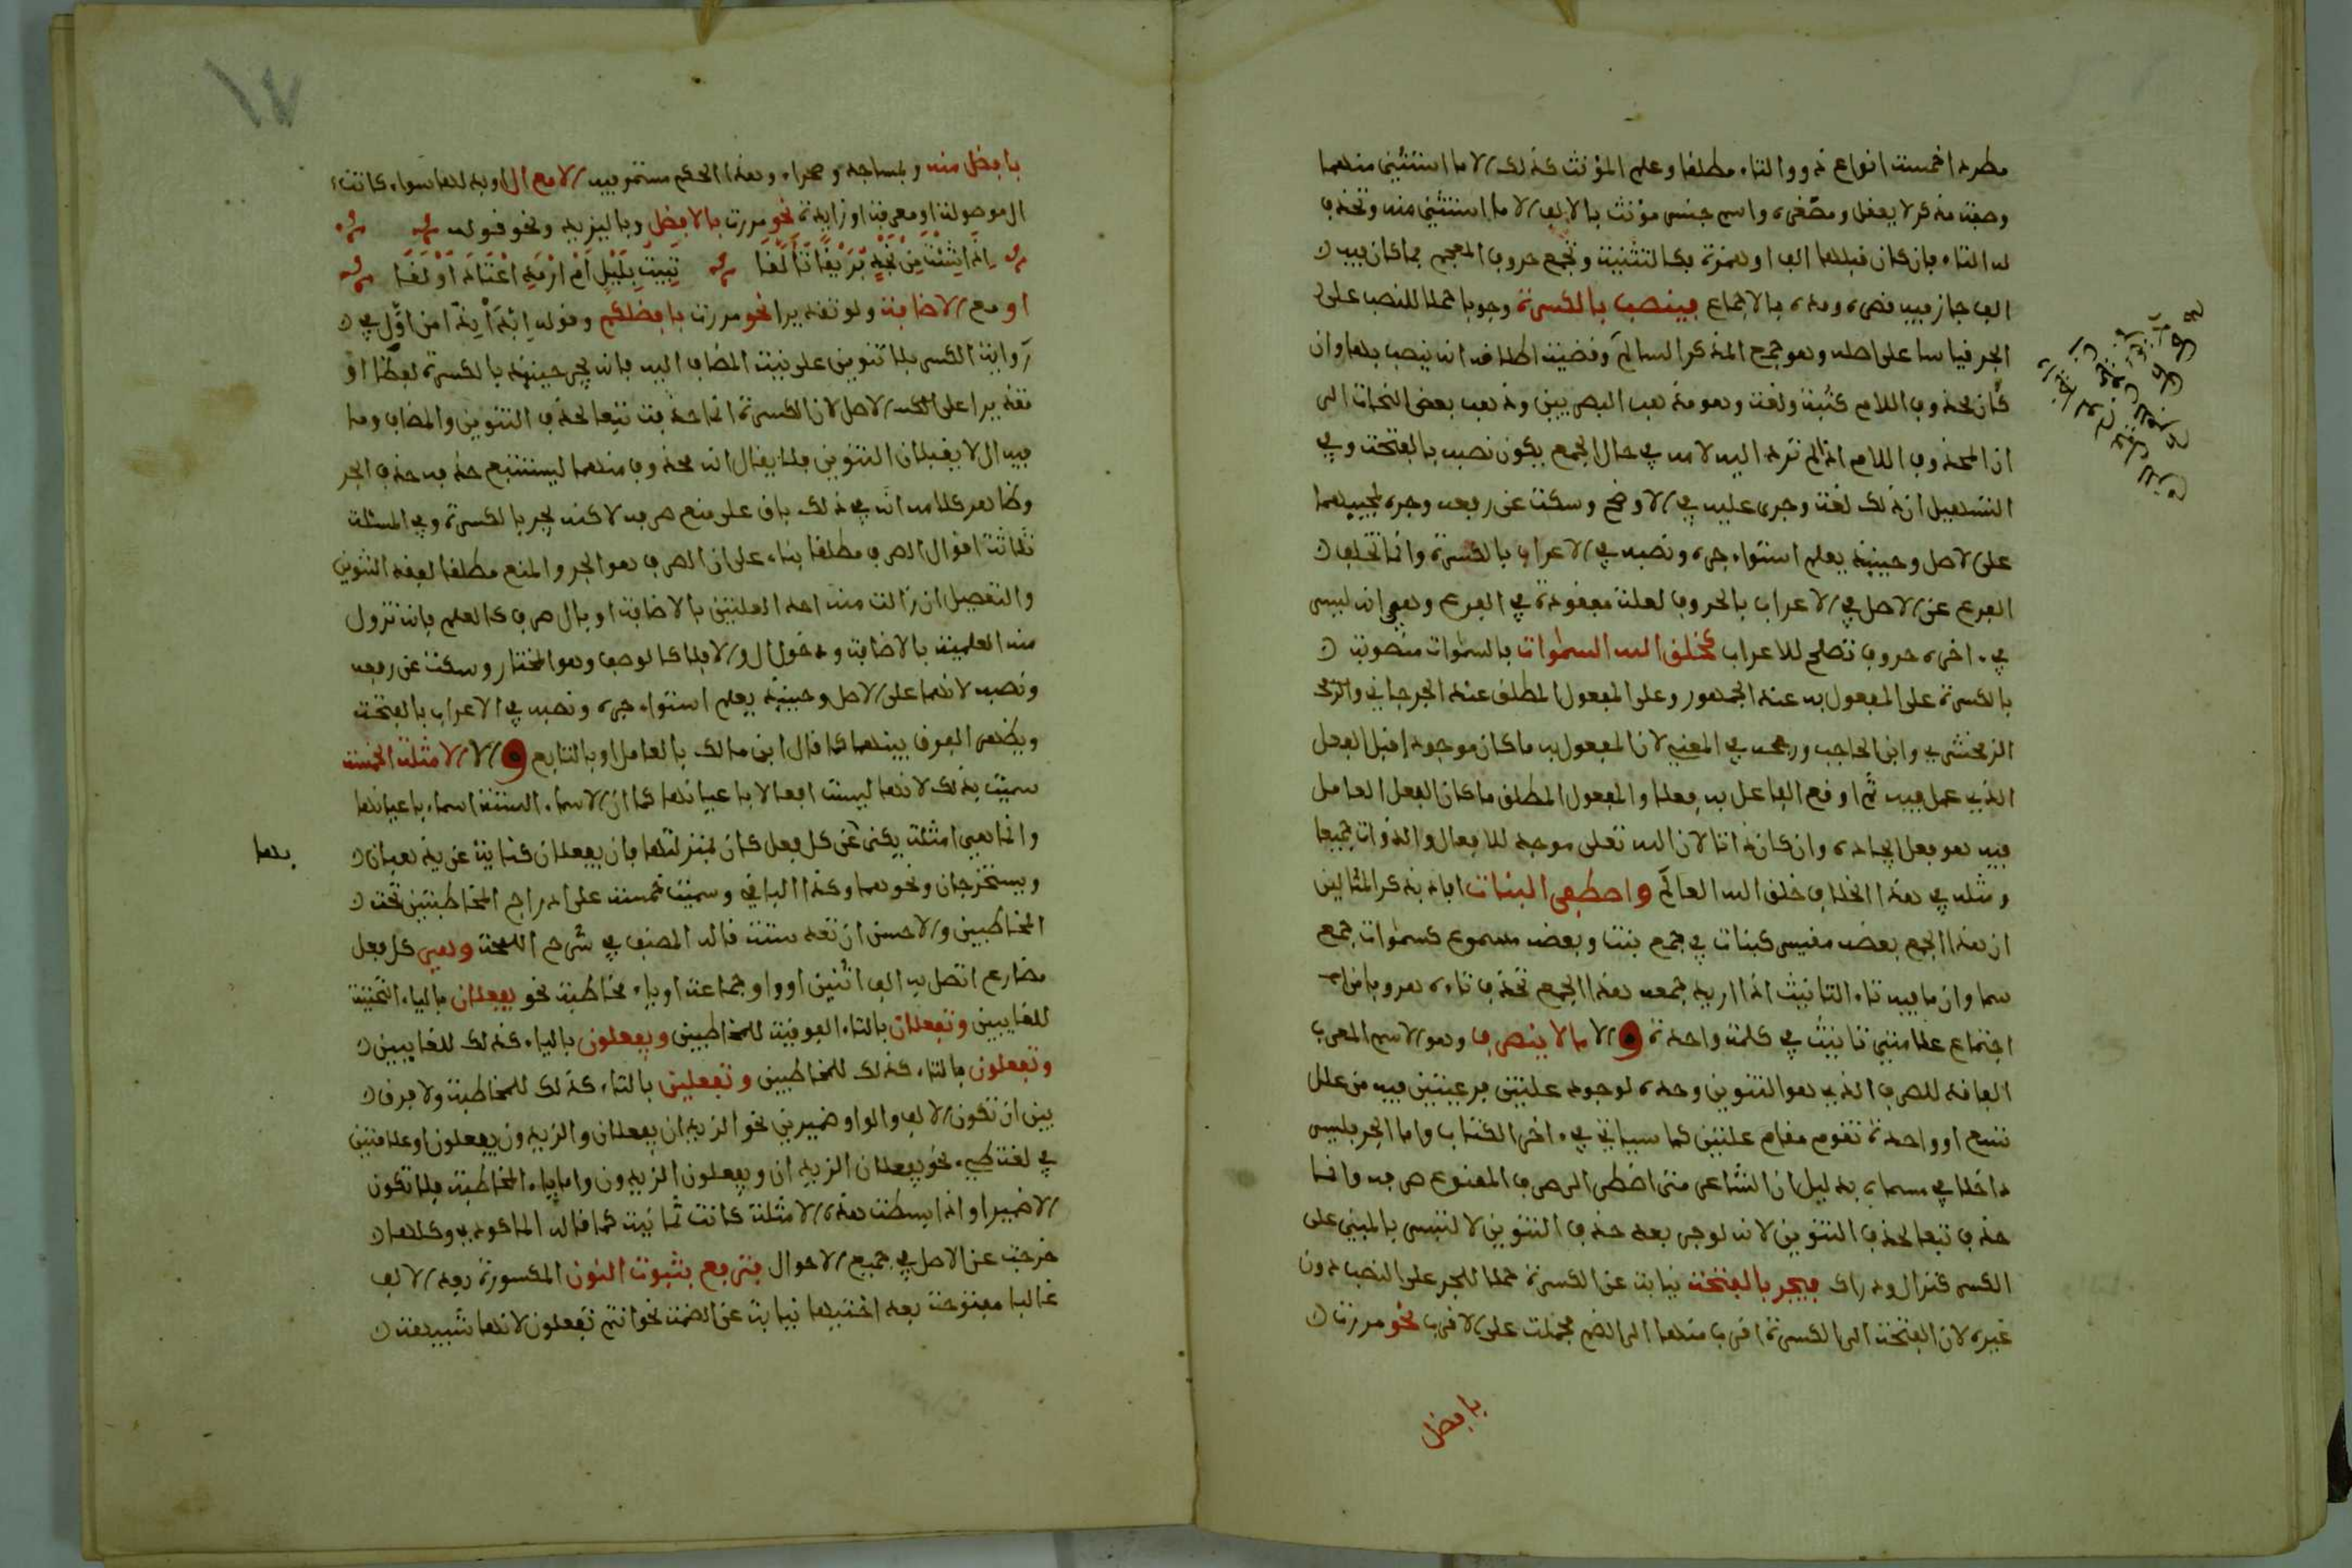 مطردا خمسة انواع ذو والتاء مطلقا وعلم المؤنث كذلك الا ما استثني منهما
وصفة مذكر لا يعقل ومصغره واسم جنس مؤنث بالالف الا ما استثني منه وتحذف
له التاء فان كان قبلها الف او همزة فكالتثنية وتجمع حروف المعجم فما كان فيه
الف جاز فيه قصره ومده بالاجماع فينصب بالكسرة وجوبا حملا للنصب على
الجر قياسا على اصله وهو جمع المذكر السالم وقضية اطلاقه انه ينصب بها وان
كان محذوف اللام كثبة ولغة وهو مذهب البصريين وذهب بعض النحاة الى
ان المحذوف اللام اذا لم ترد اليه لامه في حال الجمع يكون نصبه بالفتحة وفي
التسهيل ان ذلك لغة وجرى عليه في الاوضح وسكت عن رفعه وجره لمجيئهما
على الاصل وحينئذ يعلم استواء جره ونصبه في الاعراب بالكسرة وانما تخلف
الفرع عن الاصل في الاعراب بالحروف لعلة مفقودة في الفرع وهي انه ليس
في ءاخره حروف تصلح للاعراب كخلق الله السموات فالسموات منصوبة
بالكسرة على المفعول به عند الجمهور وعلى المفعول المطلق عند الجرجاني
الزمخشري وابن الحاجب ورجحه في المغني لان المفعول به ما كان موجودا قبل الفعل
الذي عمل فيه ثم اوقع الفاعل به فعلا والمفعول المطلق ما كان الفعل العامل
فيه هو فعل ايجاده وان كان ذاتا لان الله تعلى موجد للافعال والذوات جميعا
ومثله في هذا الخلاف خلق الله العالم واصطفى البنات افاد بذكر المثالين
ان هذا الجمع بعضه مقيس كبنات في جمع بنت وبعضه مسموع كسموات جمع
سما وان ما فيه تاء التانيث اذا اريد جمعه هذا الجمع تحذف تاءه هروبا من
اجتماع علامتي تانيث في كلمة واحدة و الا ما لا ينصرف وهو الاسم المعرب
الفاقد للصرف الذي هو التنوين وحده لوجود علتين فرعيتين فيه من علل
تسع او واحدة تقوم مقام علتين كما سياتي في ءاخر الكتاب واما الجر فليس
داخلا في مسماه بدليل ان الشاعر متى اضطر الى صرف الممنوع صرفه وانما
حذف تبعا لحذف التنوين لانه لو جر بعد حذف التنوين لالتبس بالمبني على
الكسر كنزال ودراك فيجر بالفتحة نيابة عن الكسرة حملا للجر على النصب دون
غيره لان الفتحة الى الكسرة اقرب منها الى الضم فحملت على الاقرب نحو مررت
بافضل
بافضل منه وبمساجد وصحراء وهذا الحكم مستمر فيه الا مع ال او بدلها سواء كانت
ال موصولة او معرفة او زايدة نحو مررت بالافضل وباليزيد ونحو قوله
تبيت بليل ام ارمد اعتاد اولقا
او مع الاضافة ولو تقديرا نحو مررت بافضلكم وقوله ابدا بذا من اول في
رواية الكسر بلا تنوين على نية المضاف اليه فانه يجر حينئذ بالكسرة لفظا او
تقديرا على الاصل لان الكسرة انما حذفت تبعا لحذف التنوين والمضاف وما
فيه ال لا يقبلان التنوين فلا يقال انه محذوف منهما ليستتبع حذفه حذف الجر
وظاهر كلامه انه في ذلك باق على منع صرفه لاكنه يجر بالكسرة وفي المسئلة
ثلاثة اقوال الصرف مطلقا بناء على ان الصرف هو الجر والمنع مطلقا لفقد التنوين
والتفصيل ان زالت منه احد العلتين بالاضافة او بال صرف كالعلم فانه تزول
منه العلمية بالاضافة ودخول ال والا فلا كالوصف وهو المختار وسكت عن رفعه
ونصبه لانهما على الاصل وحينئذ يعلم استواء جره ونصبه في الاعراب بالفتحة
ويظهر الفرق بينهما كما قال ابن مالك بالعامل او بالتابع و الا الامثلة الخمسة
سميت بذلك لانها ليست افعالا باعيانها كما ان الاسماء الستة اسماء باعيانها
وانما هي امثلة يكنى عن كل فعل كان بمنزلتها فان يفعلان كناية عن يذهبان
بها
ويستخرجان ونحوهما وكذا الباقي وسميت خمسة على ادراج المخاطبتين تحت
المخاطبين والاحسن ان تعد ستة قاله المصنف في شرح اللمحة وهي كل فعل
مضارع اتصل به الف اثنين او واو جماعة او ياء مخاطبة نحو يفعلان بالياء التحتية
للغايبين وتفعلان بالتاء الفوقية للمخاطبين ويفعلون بالياء كذلك للغايبين
وتفعلون بالتاء كذلك للمخاطبين وتفعلين بالتاء كذلك للمخاطبة ولا فرق
بين ان تكون الالف والواو ضميرين نحو الزيدان يفعلان والزيدون يفعلون او علامتين
في لغة طيء نحو يفعلان الزيدان ويفعلون الزيدون واما ياء المخاطبة فلا تكون
الا ضميرا واذا بسطت هذه الامثلة كانت ثمانية كما قاله الماكودي وكلها
خرجت عن الاصل في جميع الاحوال فترفع بثبوت النون المكسورة بعد الالف
غالبا مفتوحة بعد اختيها نيابة عن الضمة نحو انتم تفعلون لانها شبيهة